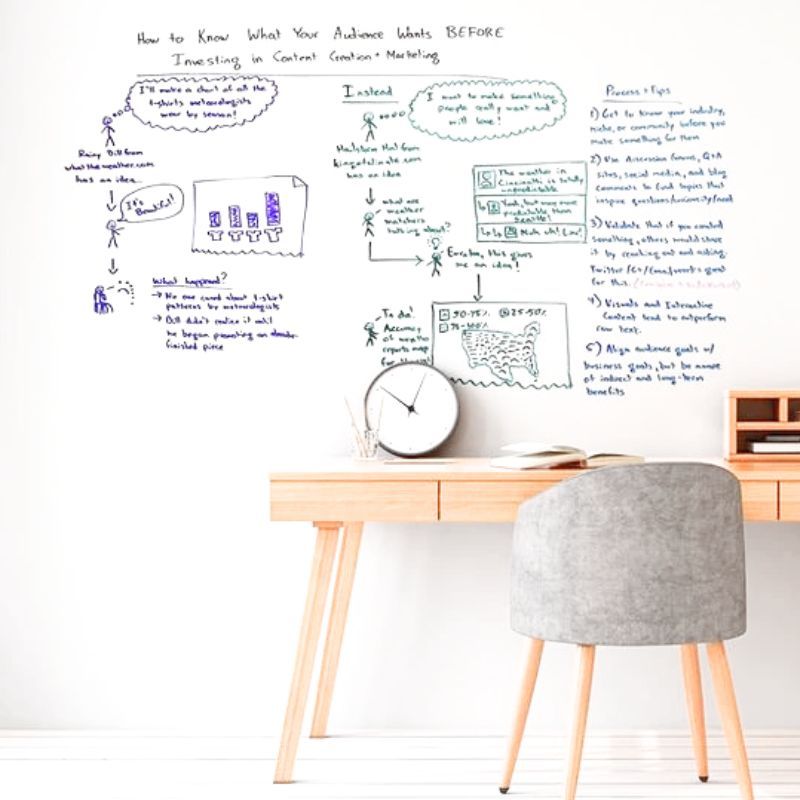 How to Know What Your Audience Wants BEFORE
Investing in Content Creation + Marketing
I'll make a chart of all the
t-shirts meteorologists
wear by season!
Rainy Bill from
whattheweather.com
has an idea...
It's
Beautiful!
What happened?
→ No one cared about t-shirt
patterns by meteorologists
→ Bill didn't realize it until
he began promoting an already-
finished piece
Instead
I want to make something
people really want and
will love!
Hailstorm Hal from
kingofclimate.com
has an idea
what are
weather
watchers
talking about?
The weather in
Cincinatti is totally
unpredictable
Yeah, but way more
predictable than
Seattle!
Nuh uh!
Eureka, this gives
me an idea!
To do:
Accuracy
of weather
reports map
90-75%
25-50%
75-
Process + Tips
1) Get to know your industry,
niche, or community before you
make something for them
2) Use discussion forums, Q+A
sites, social media, and blog
comments to find topics that
inspire questions/curiosity/need
3) Validate that if you created
something, others would share
it by reaching out and asking.
Twitter/G+/email work great
for this.
4) Visuals and Interactive
Content tend to outperform
raw text.
5) Align audience goals w/
business goals, but be aware
of indirect and long-term
benefits